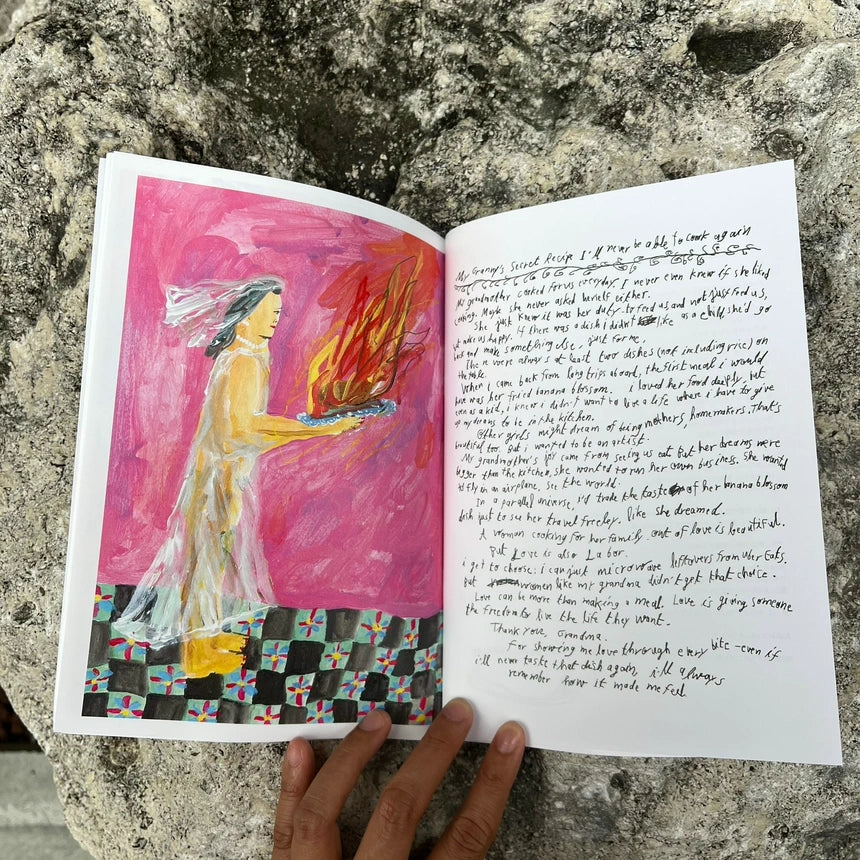 My Granny's Secret Recipe I'll never be able to cook again
My grandmother cooked for us everyday. I never even knew if she liked
cooking. Maybe she never asked herself either.
She just knew it was her duty. to feed us, and not just feed us,
but make us happy. If there was a dish I didn't like as a child, she'd go
back and make something else, just for me.
There were always at least two dishes (not including rice) on
the table.
When I came back from long trips aboard, the first meal i would
have was her fried banana blossom. i loved her food deeply, but
even as a kid, i knew i didn't want to live a life where i have to give
up my dreams to be in the kitchen.
Other girls might dream of being mothers, homemakers. That's
beautiful too. But i wanted to be an artist.
My grandmother's joy came from seeing us eat But her dreams were
bigger than the kitchen, she wanted to run her own business. She wanted
to fly in an airplane. see the world.
In a parallel universe, i'd trade the taste of her banana blossom
dish just to see her travel freeley. like she dreamed.
A woman cooking for her family out of love is beautiful.
But Love is also Labor.
i get to choose: i can just microwave leftovers from uber Eats.
But women like my grandma didn't get that choice.
Love can be more than making a meal. Love is giving someone
the freedom to live the life they want.
Thank you, Grandma.
For showing me love through every bite - even if
i'll never taste that dish again, i'll always
remember how it made me feel